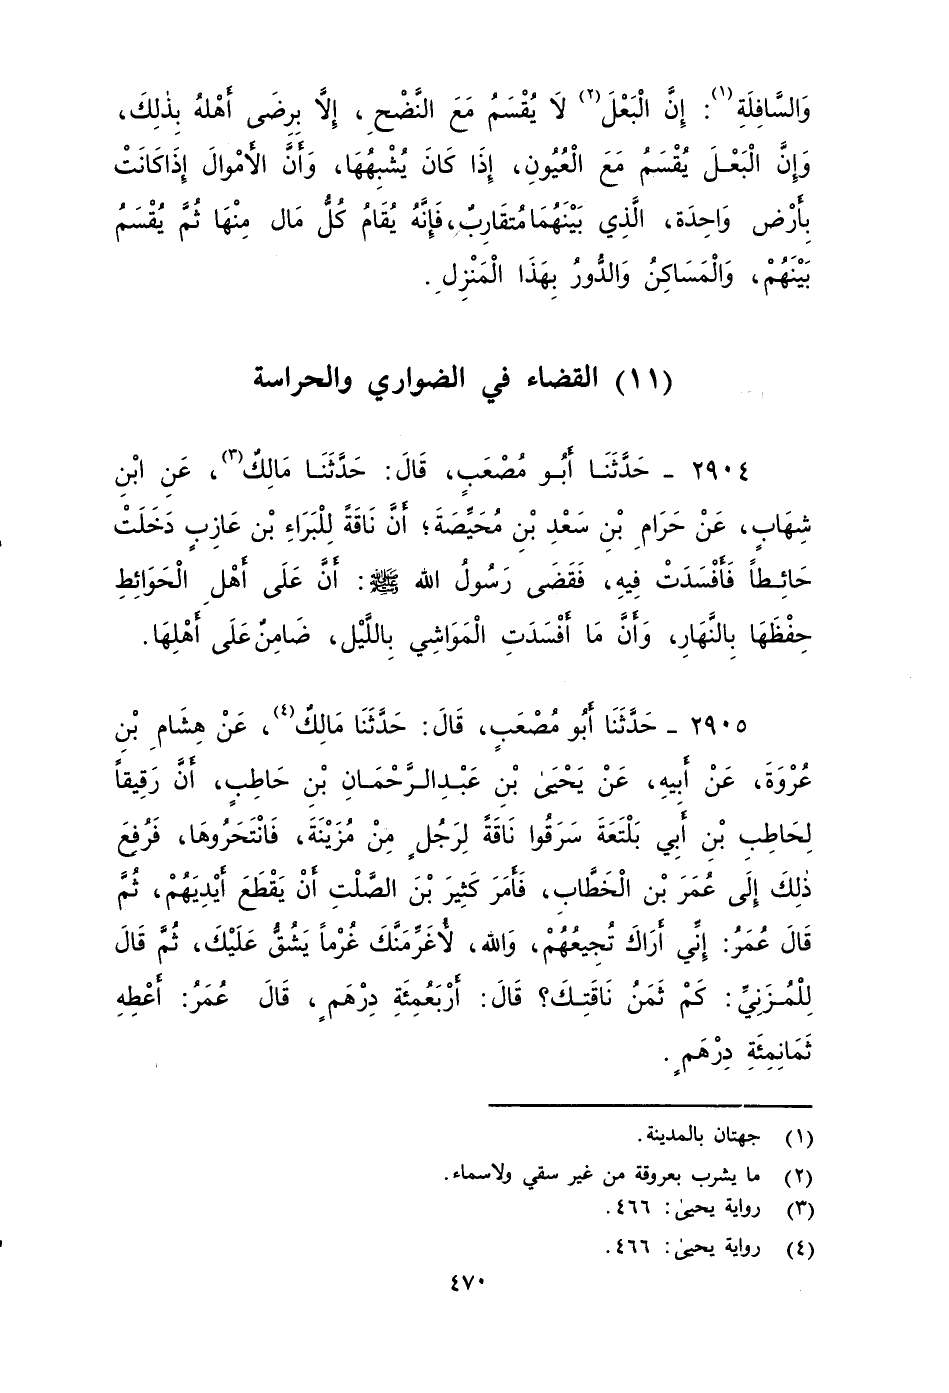 وَالسَّافِلَةِ(١): إِنَّ الْبَعْلَ(٢) لَا يُقْسَمُ مَعَ النَّضْحِ، إِلَّا بِرِضَى أَهْلهُ بِذٰلِكَ،
وَإِنَّ الْبَعْـلَ يُقْسَمُ مَعَ الْعُيُونِ، إِذَا كَانَ يُشْبِهُهَا، وَأَنَّ الأَمْوالَ إِذَاكَانَتْ
بِأَرْضٍ وَاحِدَة، الَّذِي بَيْنَهُمَا مُتقَارِبٌ، فَإِنَّهُ يُقَامُ كُلُّ مال مِنْهَا ثُمَّ يُقْسَمُ
بَيْنَهُمْ، وَالْمَسَاكِنُ وَالدُّورُ بِهَذَا الْمَنْزِلِ.
(١١) القضاء في الضواري والحراسة
٢٩٠٤ - حَدَّثَنَـا أَبُـو مُصْعَبٍ، قَالَ: حَدَّثَنَـا مَالِكٌ(٣)، عَنِ ابْنِ
شِهَابٍ، عَنْ حَرَامِ بْنِ سَعْدِ بْنِ مُحَيِّصَةَ؛ أَنَّ نَاقَةً لِلْبَرَاءِ بْنِ عَازِبٍ دَخَلَتْ
حَائِـطاً فَأَفْسَدَتْ فِيهِ، فَقَضَى رَسُولُ الله ﷺ: أَنَّ عَلَى أَهْلِ الْحَوَائِطِ
حِفْظَهَا بِالنَّهَارِ، وَأَنَّ مَا أَفْسَدَتِ الْمَوَاشِي بِاللَّيْلِ، ضَامِنٌ عَلَى أَهْلِهَا.
٢٩٠٥ - حَدَّثَنَا أَبُو مُصْعَبٍ، قَالَ: حَدَّثَنَا مَالِكٌ(٤)، عَنْ هِشَامِ بْنِ
عُرْوَةَ، عَنْ أَبِيهِ، عَنْ يَحْيَىٰ بْنِ عَبْـدِالـرَّحْمَـانِ بْنِ حَاطِبٍ، أَنَّ رَقِيقاً
لِحَاطِبِ بْنِ أَبِي بَلْتَعَةَ سَرَقُوا نَاقَةً لِرَجُلٍ مِنْ مُزَيْنَةَ، فَانْتَحَرُوهَا، فَرُفِعَ
ذٰلِكَ إِلَى عُمَرَ بْنِ الْخَطَّابِ، فَأَمَرَ كَثِيرَ بْنَ الصَّلْتِ أَنْ يَقْطَعَ أَيْدِيَهُمْ، ثُمَّ
قَالَ عُمَرُ: إِنِّي أَرَاكَ تُجِيعُهُمْ، وَالله، لأُغَرِّمَنَّكَ غُرْماً يَشُقُّ عَلَيْكَ، ثُمَّ قَالَ
لِلْمُـزَنِيِّ: كَمْ ثَمَنُ نَاقَتِـكَ؟ قَالَ: أَرْبَعُمِئَةِ دِرْهَمٍ، قَالَ عُمَرُ: أَعْطِهِ
ثَمَانِمِئَةِ دِرْهَمٍ.
(١) جهتان بالمدينة.
(٢) ما يشرب بعروقة من غير سقي ولاسماء.
(٣) رواية يحيىٰ: ٤٦٦.
(٤) رواية يحيىٰ: ٤٦٦.
٤٧٠